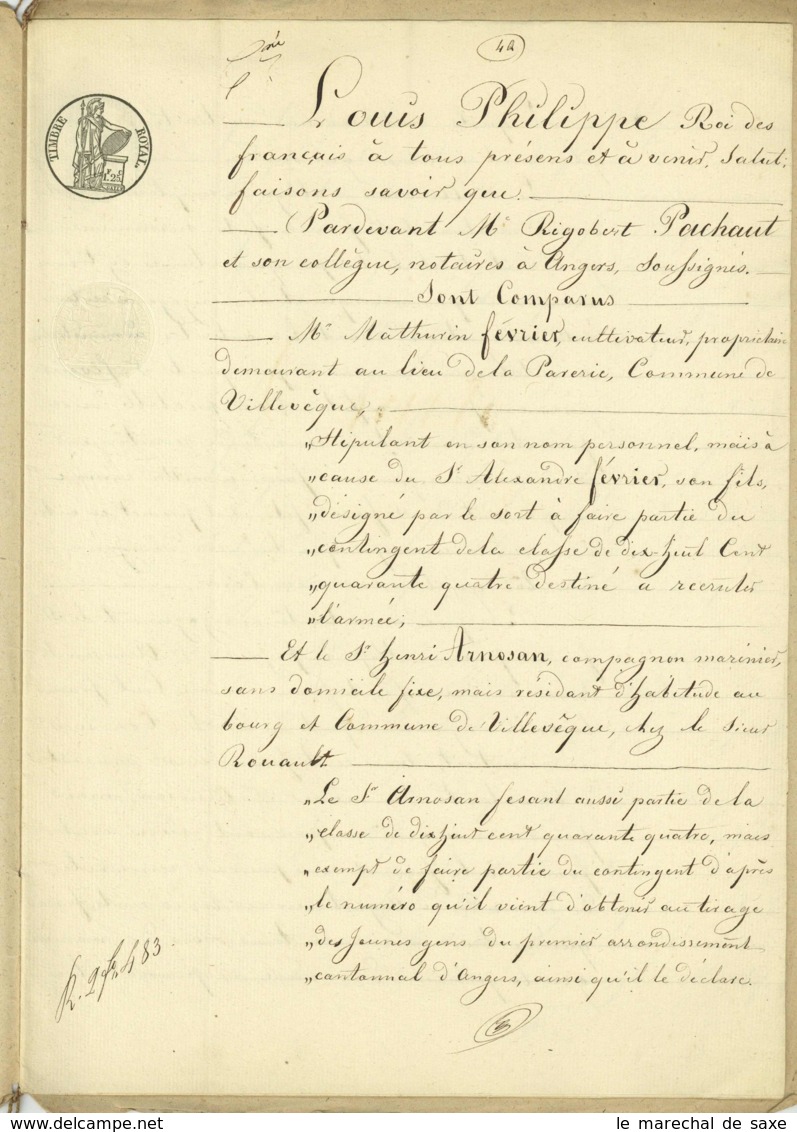 TIMBRE ROYAL
1F.25C
Louis Philippe Roi des
français à tous présens et à venir, Salut;
faisons savoir que.
Pardevant Me Rigobert Pachaut
et son collègue, notaires à Angers, Soussignés.
Sont Comparus
Mr Mathurin février, cultivateur, propriétaire
demeurant au lieu de la Parerie, Commune de
Villevêque,
"Stipulant en son nom personnel, mais à
"cause du Sr Alexandre février, son fils,
"désigné par le sort à faire partie du
"contingent de la classe de dix-huit Cent
"quarante quatre destiné a recruter
"l'armée;
Et le Sr henri Arnosan, compagnon marinier,
sans domicile fixe, mais résidant d'habitude au
bourg et Commune de Villevêque, chez le Sieur
Rouault
"Le Sr Arnosan fesant aussi partie de la
"classe de dix huit cent quarante quatre, mais
"exempt de faire partie du contingent d'après
"le numéro qu'il vient d'obtenir au tirage
"des Jeunes gens du premier arrondissement
"cantonnal d'Angers, ainsi qu'il le déclare.
le marechal de saxe